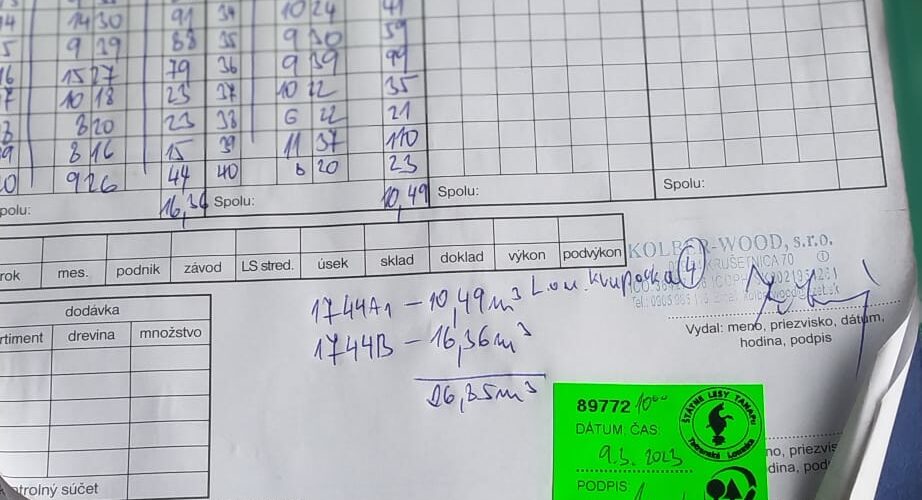 14 30 91 34 10 24 41
9 29 88 35 9 30 59
15 27 79 36 9 39 99
10 18 23 37 10 22 35
8 20 23 38 6 22 21
8 16 15 39 11 37 110
9 26 44 40 8 20 23
polu: 16,36 Spolu: 10,49 Spolu: Spolu:
rok mes. podnik závod LS stred. úsek sklad doklad výkon podvýkon
KOLBER-WOOD, s.r.o.
KRUŠETNICA 70
dodávka
rtiment drevina množstvo
1744A1 - 10,49m³ L.ou. krupovka 4
1744B - 16,36m³
26,85m³
Vydal: meno, priezvisko, dátum,
hodina, podpis
89772 10⁰⁰
DÁTUM, ČAS
9.3. 2023
PODPIS
ŠTÁTNE LESY TANAPU
Tatranská Lomnica
no, priezvis
dina, pod
ntrolný súčet